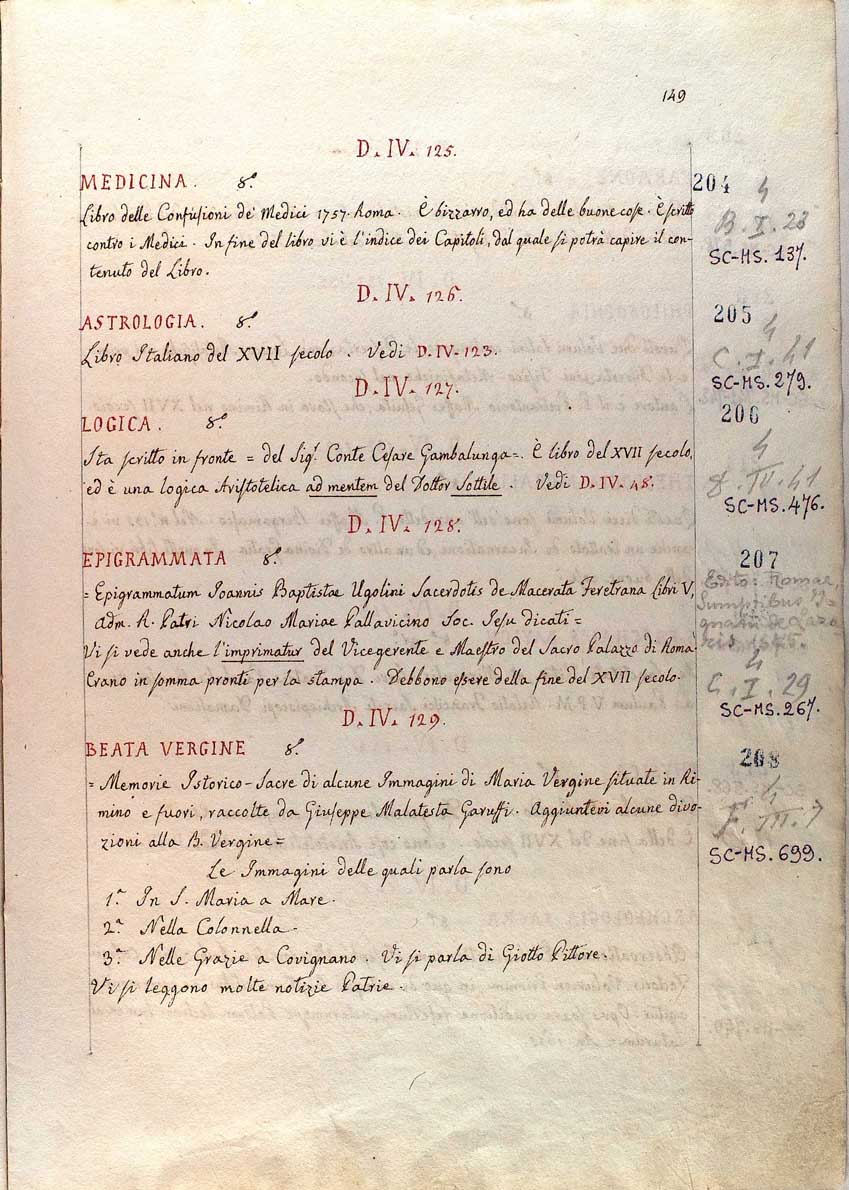 149
D. IV. 125.
MEDICINA. 8.º 204
Libro delle Confusioni de' Medici 1757. Roma. È bizzarro, ed ha delle buone cose. È scritto
contro i Medici. In fine del libro vi è l'indice dei Capitoli, dal quale si potrà capire il con-
tenuto del Libro.
4
B. I. 23
SC-MS. 137.
D. IV. 126.
ASTROLOGIA. 8.º 205
Libro Italiano del XVII secolo. Vedi D. IV-123.
4
C. I. 41
SC-MS. 279.
D. IV. 127.
LOGICA. 8.º 206
Sta scritto in fronte = del Sigr. Conte Cesare Gambalunga=. È libro del XVII secolo,
ed è una logica Aristotelica ad mentem del Dottor Sottile. Vedi D. IV. 48.
4
IV. 41
SC-MS. 476.
D. IV. 128.
EPIGRAMMATA 8.º 207
= Epigrammatum Ioannis Baptistae Ugolini Sacerdotis de Macerata Feretrana Libri V,
Adm. R. Patri Nicolao Mariae Pallavicino Soc. Jesu dicati=
Vi si vede anche l'imprimatur del Vicegerente e Maestro del Sacro Palazzo di Roma.
Erano in somma pronti per la stampa. Debbono essere della fine del XVII secolo.
Edito: Romae,
Sumptibus I-
gnatii de Laza-
ris, 1675.
4
C. I. 29
SC-MS. 267.
D. IV. 129.
BEATA VERGINE 8.º 208
= Memorie Istorico-Sacre di alcune Immagini di Maria Vergine situate in Ri-
mino e fuori, raccolte da Giuseppe Malatesta Garuffi. Aggiuntevi alcune divo-
zioni alla B. Vergine=
4
F. III. 7
SC-MS. 699.
Le Immagini delle quali parla sono
1.ª In S. Maria a Mare.
2.ª Nella Colonnella.
3.ª Nelle Grazie a Covignano. Vi si parla di Giotto Pittore.
Vi si leggono molte notizie Patrie.